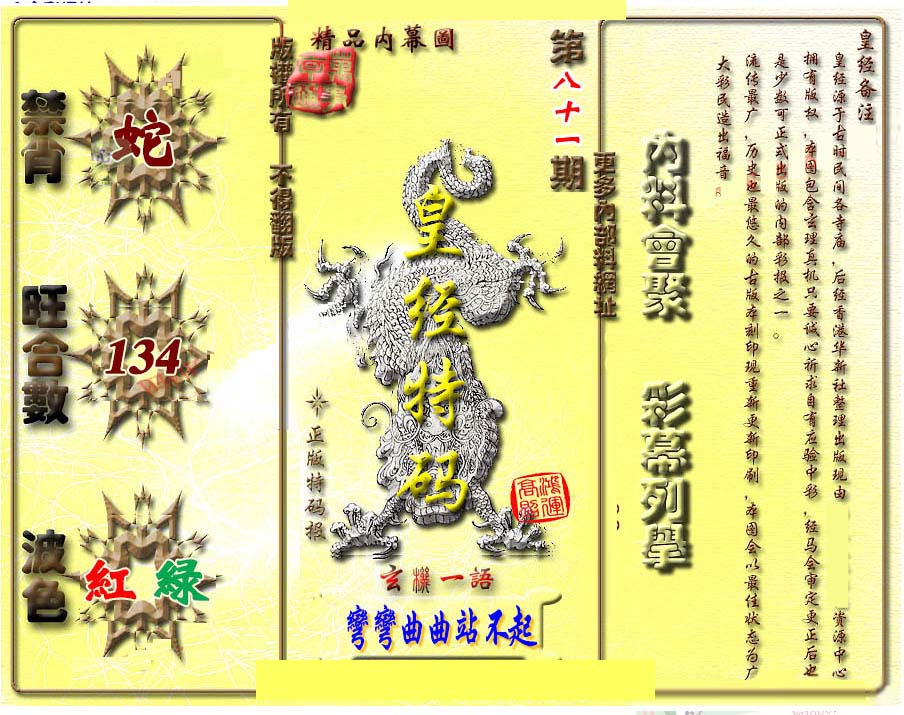 精品内幕圖
第八十一期
版權所有 不得翻版
更多內部料網址
禁肖
蛇
旺合數
134
波色
紅 綠
皇经特码
正版特码报
鴻運高照
玄機一語
彎彎曲曲站不起
內料會聚
彩幕列舉
皇经备注
皇经源于古时民间各寺庙,后经香港华新社整理出版现由 资源中心
拥有版权,本图包含玄理真机只要诚心祈求自有应验中彩,经马会审定更正后也
是少数可正式出版的内部彩报之一。
流传最广,历史也最悠久的古版本刻印现重新更新印刷,本图会以最佳状态为广
大彩民造出福音